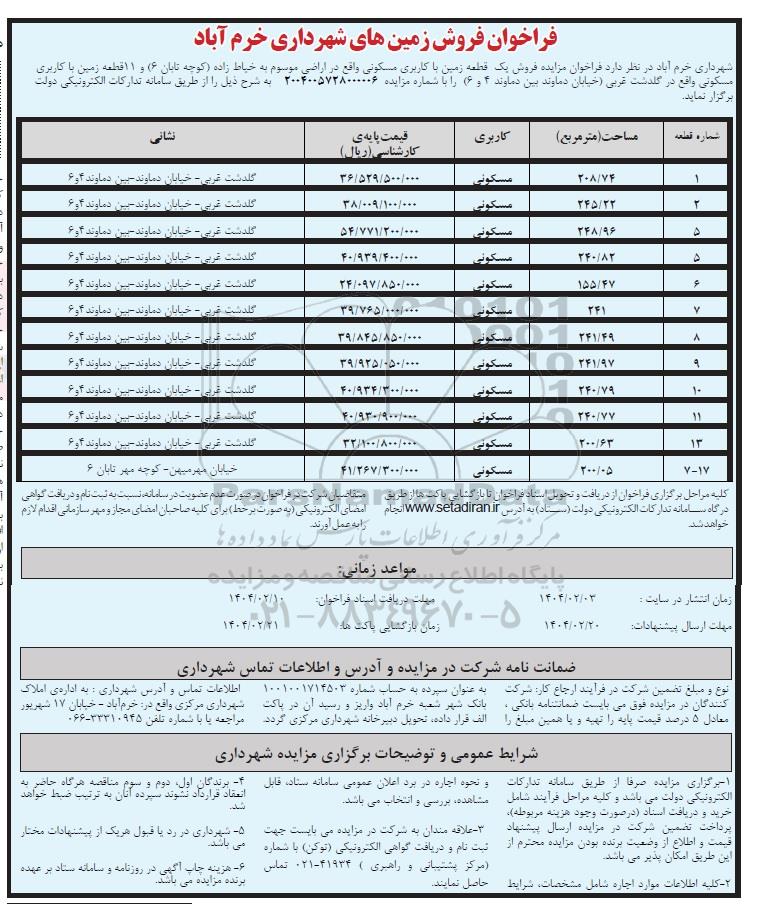 فراخوان فروش زمین های شهرداری خرم آباد
شهرداری خرم آباد در نظر دارد فراخوان مزایده فروش یک قطعه زمین با کاربری مسکونی واقع در اراضی موسوم به خیاط زاده (کوچه تابان ۶) و ۱۱قطعه زمین با کاربری
مسکونی واقع در گلدشت غربی (خیابان دماوند بین دماوند ۴ و ۶) را با شماره مزایده ۲۰۰۴۰۰۵۷۲۸۰۰۰۰۰۶ به شرح ذیل را از طریق سامانه تدارکات الکترونیکی دولت
برگزار نماید.
شماره قطعه مساحت(مترمربع) کاربری قیمت پایه‌ی کارشناسی(ریال) نشانی
۱ ۲۰۸/۷۴ مسکونی ۳۶/۵۲۹/۵۰۰/۰۰۰ گلدشت غربی- خیابان دماوند-بین دماوند۴و۶
۲ ۲۴۵/۲۲ مسکونی ۳۸/۰۰۹/۱۰۰/۰۰۰ گلدشت غربی- خیابان دماوند-بین دماوند۴و۶
۵ ۲۴۸/۹۶ مسکونی ۵۴/۷۷۱/۲۰۰/۰۰۰ گلدشت غربی- خیابان دماوند-بین دماوند۴و۶
۵ ۲۴۰/۸۲ مسکونی ۴۰/۹۳۹/۴۰۰/۰۰۰ گلدشت غربی- خیابان دماوند-بین دماوند۴و۶
۶ ۱۵۵/۴۷ مسکونی ۲۴/۰۹۷/۸۵۰/۰۰۰ گلدشت غربی- خیابان دماوند-بین دماوند۴و۶
۷ ۲۴۱ مسکونی ۳۹/۷۶۵/۰۰۰/۰۰۰ گلدشت غربی- خیابان دماوند-بین دماوند۴و۶
۸ ۲۴۱/۴۹ مسکونی ۳۹/۸۴۵/۸۵۰/۰۰۰ گلدشت غربی- خیابان دماوند-بین دماوند۴و۶
۹ ۲۴۱/۹۷ مسکونی ۳۹/۹۲۵/۰۵۰/۰۰۰ گلدشت غربی- خیابان دماوند-بین دماوند۴و۶
۱۰ ۲۴۰/۷۹ مسکونی ۴۰/۹۳۴/۳۰۰/۰۰۰ گلدشت غربی- خیابان دماوند-بین دماوند۴و۶
۱۱ ۲۴۰/۷۷ مسکونی ۴۰/۹۳۰/۹۰۰/۰۰۰ گلدشت غربی- خیابان دماوند-بین دماوند۴و۶
۱۳ ۲۰۰/۶۳ مسکونی ۳۲/۱۰۰/۸۰۰/۰۰۰ گلدشت غربی- خیابان دماوند-بین دماوند۴و۶
۷-۱۷ ۲۰۰/۰۵ مسکونی ۴۱/۲۶۷/۳۰۰/۰۰۰ خیابان مهرمیهن- کوچه مهر تابان ۶
کلیه مراحل برگزاری فراخوان از دریافت و تحویل اسناد فراخوان تا بازگشایی پاکت ها از طریق
درگاه سامانه تدارکات الکترونیکی دولت (ستاد) به آدرس www.setadiran.ir انجام
خواهد شد.
متقاضیان شرکت در فراخوان در صورت عدم عضویت در سامانه، نسبت به ثبت نام و دریافت گواهی
امضای الکترونیکی (به صورت بر خط) برای کلیه صاحبان امضای مجاز و مهر سازمانی اقدام لازم
را به عمل آورند.
مواعد زمانی:
زمان انتشار در سایت : ۱۴۰۴/۰۲/۰۳ مهلت دریافت اسناد فراخوان: ۱۴۰۴/۰۲/۱۰
مهلت ارسال پیشنهادات: ۱۴۰۴/۰۲/۲۰ زمان بازگشایی پاکت ها: ۱۴۰۴/۰۲/۲۱
ضمانت نامه شرکت در مزایده و آدرس و اطلاعات تماس شهرداری
نوع و مبلغ تضمین شرکت در فرآیند ارجاع کار: شرکت
کنندگان در مزایده فوق می بایست ضمانتنامه بانکی ،
معادل ۵ درصد قیمت پایه را تهیه و یا همین مبلغ را
به عنوان سپرده به حساب شماره ۱۰۰۱۰۰۱۷۱۴۵۰۳
بانک شهر شعبه خرم آباد واریز و رسید آن در پاکت
الف قرار داده، تحویل دبیرخانه شهرداری مرکزی گردد.
اطلاعات تماس و آدرس شهرداری : به اداره‌ی املاک
شهرداری مرکزی واقع در: خرم‌آباد - خیابان ۱۷ شهریور
مراجعه یا با شماره تلفن ۳۳۳۱۰۹۴۵-۰۶۶
شرایط عمومی و توضیحات برگزاری مزایده شهرداری
۱-برگزاری مزایده صرفا از طریق سامانه تدارکات
الکترونیکی دولت می باشد و کلیه مراحل فرآیند شامل
خرید و دریافت اسناد (درصورت وجود هزینه مربوطه)،
پرداخت تضمین شرکت در مزایده ارسال پیشنهاد
قیمت و اطلاع از وضعیت برنده بودن مزایده محترم از
این طریق امکان پذیر می باشد.
۲-کلیه اطلاعات موارد اجاره شامل مشخصات، شرایط
و نحوه اجاره در برد اعلان عمومی سامانه ستاد، قابل
مشاهده، بررسی و انتخاب می باشد.
۳-علاقه مندان به شرکت در مزایده می بایست جهت
ثبت نام و دریافت گواهی الکترونیکی (توکن) با شماره
(مرکز پشتیبانی و راهبری ) ۴۱۹۳۴-۰۲۱ تماس
حاصل نمایند.
۴- برندگان اول، دوم و سوم مناقصه هرگاه حاضر به
انعقاد قرارداد نشوند سپرده آنان به ترتیب ضبط خواهد
شد.
۵- شهرداری در رد یا قبول هریک از پیشنهادات مختار
می باشد.
۶- هزینه چاپ آگهی در روزنامه و سامانه ستاد بر عهده
برنده مزایده می باشد.
پایگاه اطلاع رسانی مناقصه و مزایده
۰۲۱-۸۸۳۴۹۶۷۰-۵